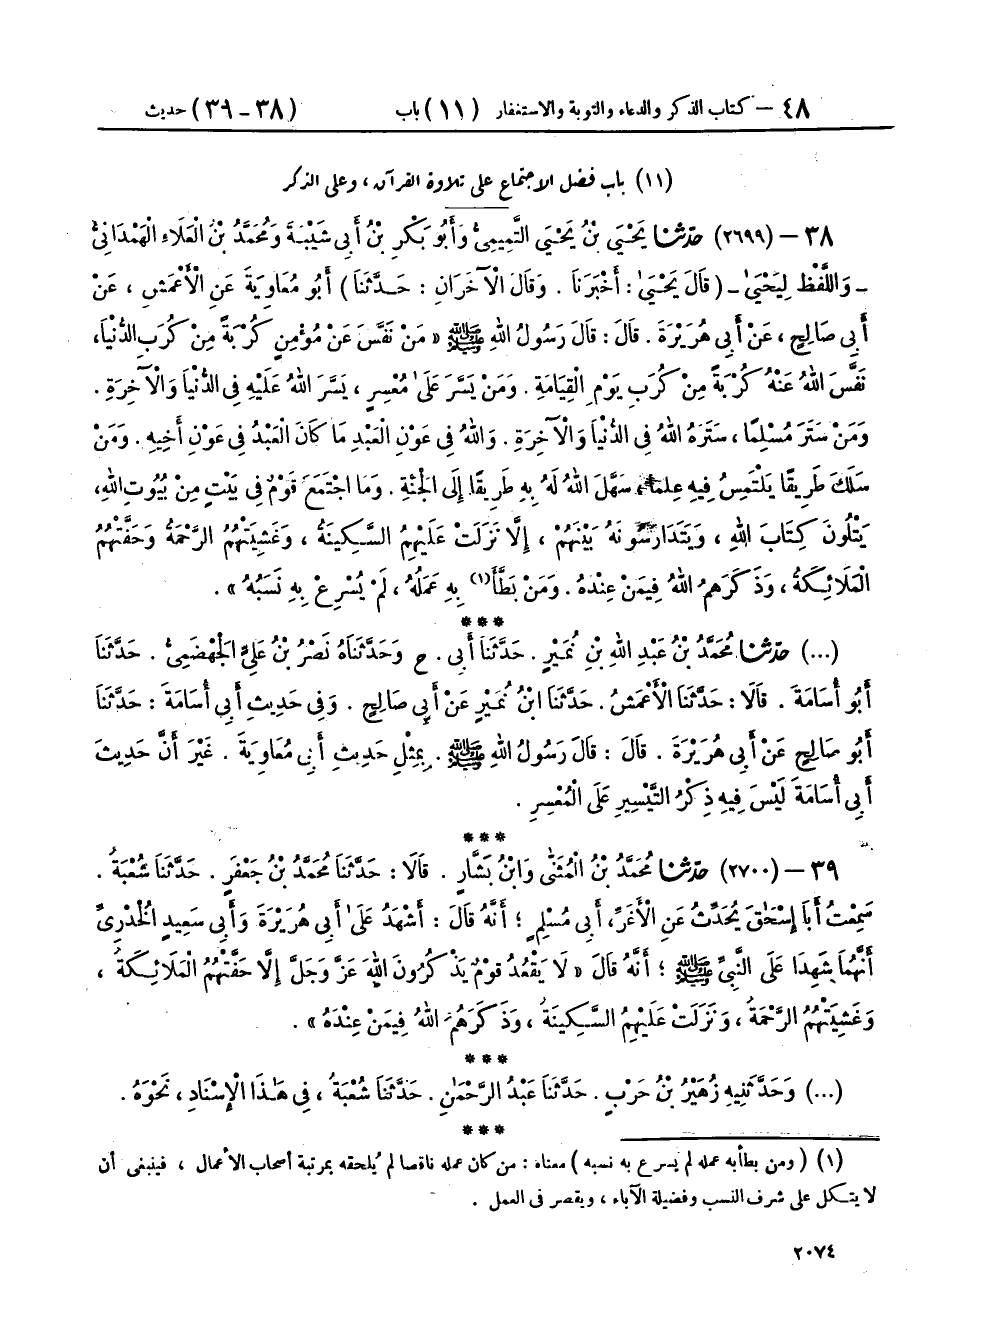 ٤٨ – كتاب الذكر والدعاء والتوبة والاستغفار (١١) باب (٣٨ - ٣٩) حديث
(١١) باب فضل الاجتماع على تلاوة القرآن، وعلى الذكر
٣٨ – (٢٦٩٩) حَدَّثَنَا يَحْيَى بْنُ يَحْيَى التَّمِيمِيُّ وَأَبُو بَكْرِ بْنُ أَبِي شَيْبَةَ وَمُحَمَّدُ بْنُ الْعَلَاءِ الْهَمْدَانِيُّ
- وَاللَّفْظُ لِيَحْيَىٰ - (قَالَ يَحْيَىٰ: أَخْبَرَنَا. وَقَالَ الْآخَرَانِ: حَدَّثَنَا) أَبُو مُعَاوِيَةَ عَنِ الْأَعْمَشِ، عَنْ
أَبِي صَالِحٍ، عَنْ أَبِي هُرَيْرَةَ. قَالَ: قَالَ رَسُولُ اللهِ ﷺ «مَنْ نَفَّسَ عَنْ مُؤْمِنٍ كُرْبَةً مِنْ كُرَبِ الدُّنْيَا،
نَفَّسَ اللهُ عَنْهُ كُرْبَةً مِنْ كُرَبِ يَوْمِ الْقِيَامَةِ. وَمَنْ يَسَّرَ عَلَىٰ مُعْسِرٍ، يَسَّرَ اللهُ عَلَيْهِ فِي الدُّنْيَا وَالْآخِرَةِ.
وَمَنْ سَتَرَ مُسْلِمًا، سَتَرَهُ اللهُ فِي الدُّنْيَا وَالْآخِرَةِ. وَاللهُ فِي عَوْنِ الْعَبْدِ مَا كَانَ الْعَبْدُ فِي عَوْنِ أَخِيهِ. وَمَنْ
سَلَكَ طَرِيقًا يَلْتَمِسُ فِيهِ عِلْمًا، سَهَّلَ اللهُ لَهُ بِهِ طَرِيقًا إِلَى الْجَنَّةِ. وَمَا اجْتَمَعَ قَوْمٌ فِي بَيْتٍ مِنْ بُيُوتِ اللهِ،
يَتْلُونَ كِتَابَ اللهِ، وَيَتَدَارَسُونَهُ بَيْنَهُمْ، إِلَّا نَزَلَتْ عَلَيْهِمُ السَّكِينَةُ، وَغَشِيَتْهُمُ الرَّحْمَةُ وَحَفَّتْهُمُ
الْمَلَائِكَةُ، وَذَكَرَهُمُ اللهُ فِيمَنْ عِنْدَهُ. وَمَنْ بَطَّأَ(١) بِهِ عَمَلُهُ، لَمْ يُسْرِعْ بِهِ نَسَبُهُ».
***
(...) حَدَّثَنَا مُحَمَّدُ بْنُ عَبْدِ اللهِ بْنِ نُمَيْرٍ. حَدَّثَنَا أَبِي. ح وَحَدَّثَنَاهُ نَصْرُ بْنُ عَلِيٍّ الْجَهْضَمِيُّ. حَدَّثَنَا
أَبُو أُسَامَةَ. قَالَا: حَدَّثَنَا الْأَعْمَشُ. حَدَّثَنَا ابْنُ نُمَيْرٍ عَنْ أَبِي صَالِحٍ. وَفِي حَدِيثِ أَبِي أُسَامَةَ: حَدَّثَنَا
أَبُو صَالِحٍ عَنْ أَبِي هُرَيْرَةَ. قَالَ: قَالَ رَسُولُ اللهِ ﷺ. بِمِثْلِ حَدِيثِ أَبِي مُعَاوِيَةَ. غَيْرَ أَنَّ حَدِيثَ
أَبِي أُسَامَةَ لَيْسَ فِيهِ ذِكْرُ التَّيْسِيرِ عَلَى الْمُعْسِرِ.
***
٣٩ – (٢٧٠٠) حَدَّثَنَا مُحَمَّدُ بْنُ الْمُثَنَّىٰ وَابْنُ بَشَّارٍ. قَالَا: حَدَّثَنَا مُحَمَّدُ بْنُ جَعْفَرٍ. حَدَّثَنَا شُعْبَةُ.
سَمِعْتُ أَبَا إِسْحَٰقَ يُحَدِّثُ عَنِ الْأَغَرِّ، أَبِي مُسْلِمٍ؛ أَنَّهُ قَالَ: أَشْهَدُ عَلَىٰ أَبِي هُرَيْرَةَ وَأَبِي سَعِيدٍ الْخُدْرِيِّ
أَنَّهُمَا شَهِدَا عَلَى النَّبِيِّ ﷺ؛ أَنَّهُ قَالَ «لَا يَقْعُدُ قَوْمٌ يَذْكُرُونَ اللهَ عَزَّ وَجَلَّ إِلَّا حَفَّتْهُمُ الْمَلَائِكَةُ،
وَغَشِيَتْهُمُ الرَّحْمَةُ، وَنَزَلَتْ عَلَيْهِمُ السَّكِينَةُ، وَذَكَرَهُمُ اللهُ فِيمَنْ عِنْدَهُ».
***
(...) وَحَدَّثَنِيهِ زُهَيْرُ بْنُ حَرْبٍ. حَدَّثَنَا عَبْدُ الرَّحْمَٰنِ. حَدَّثَنَا شُعْبَةُ، فِي هَٰذَا الْإِسْنَادِ، نَحْوَهُ.
***
(١) (ومن بطأ به عمله لم يسرع به نسبه) معناه: من كان عمله ناقصا لم يُلحقه بمرتبة أصحاب الأعمال، فينبغى أن
لا يتكل على شرف النسب وفضيلة الآباء، ويقصر فى العمل.
٢٠٧٤